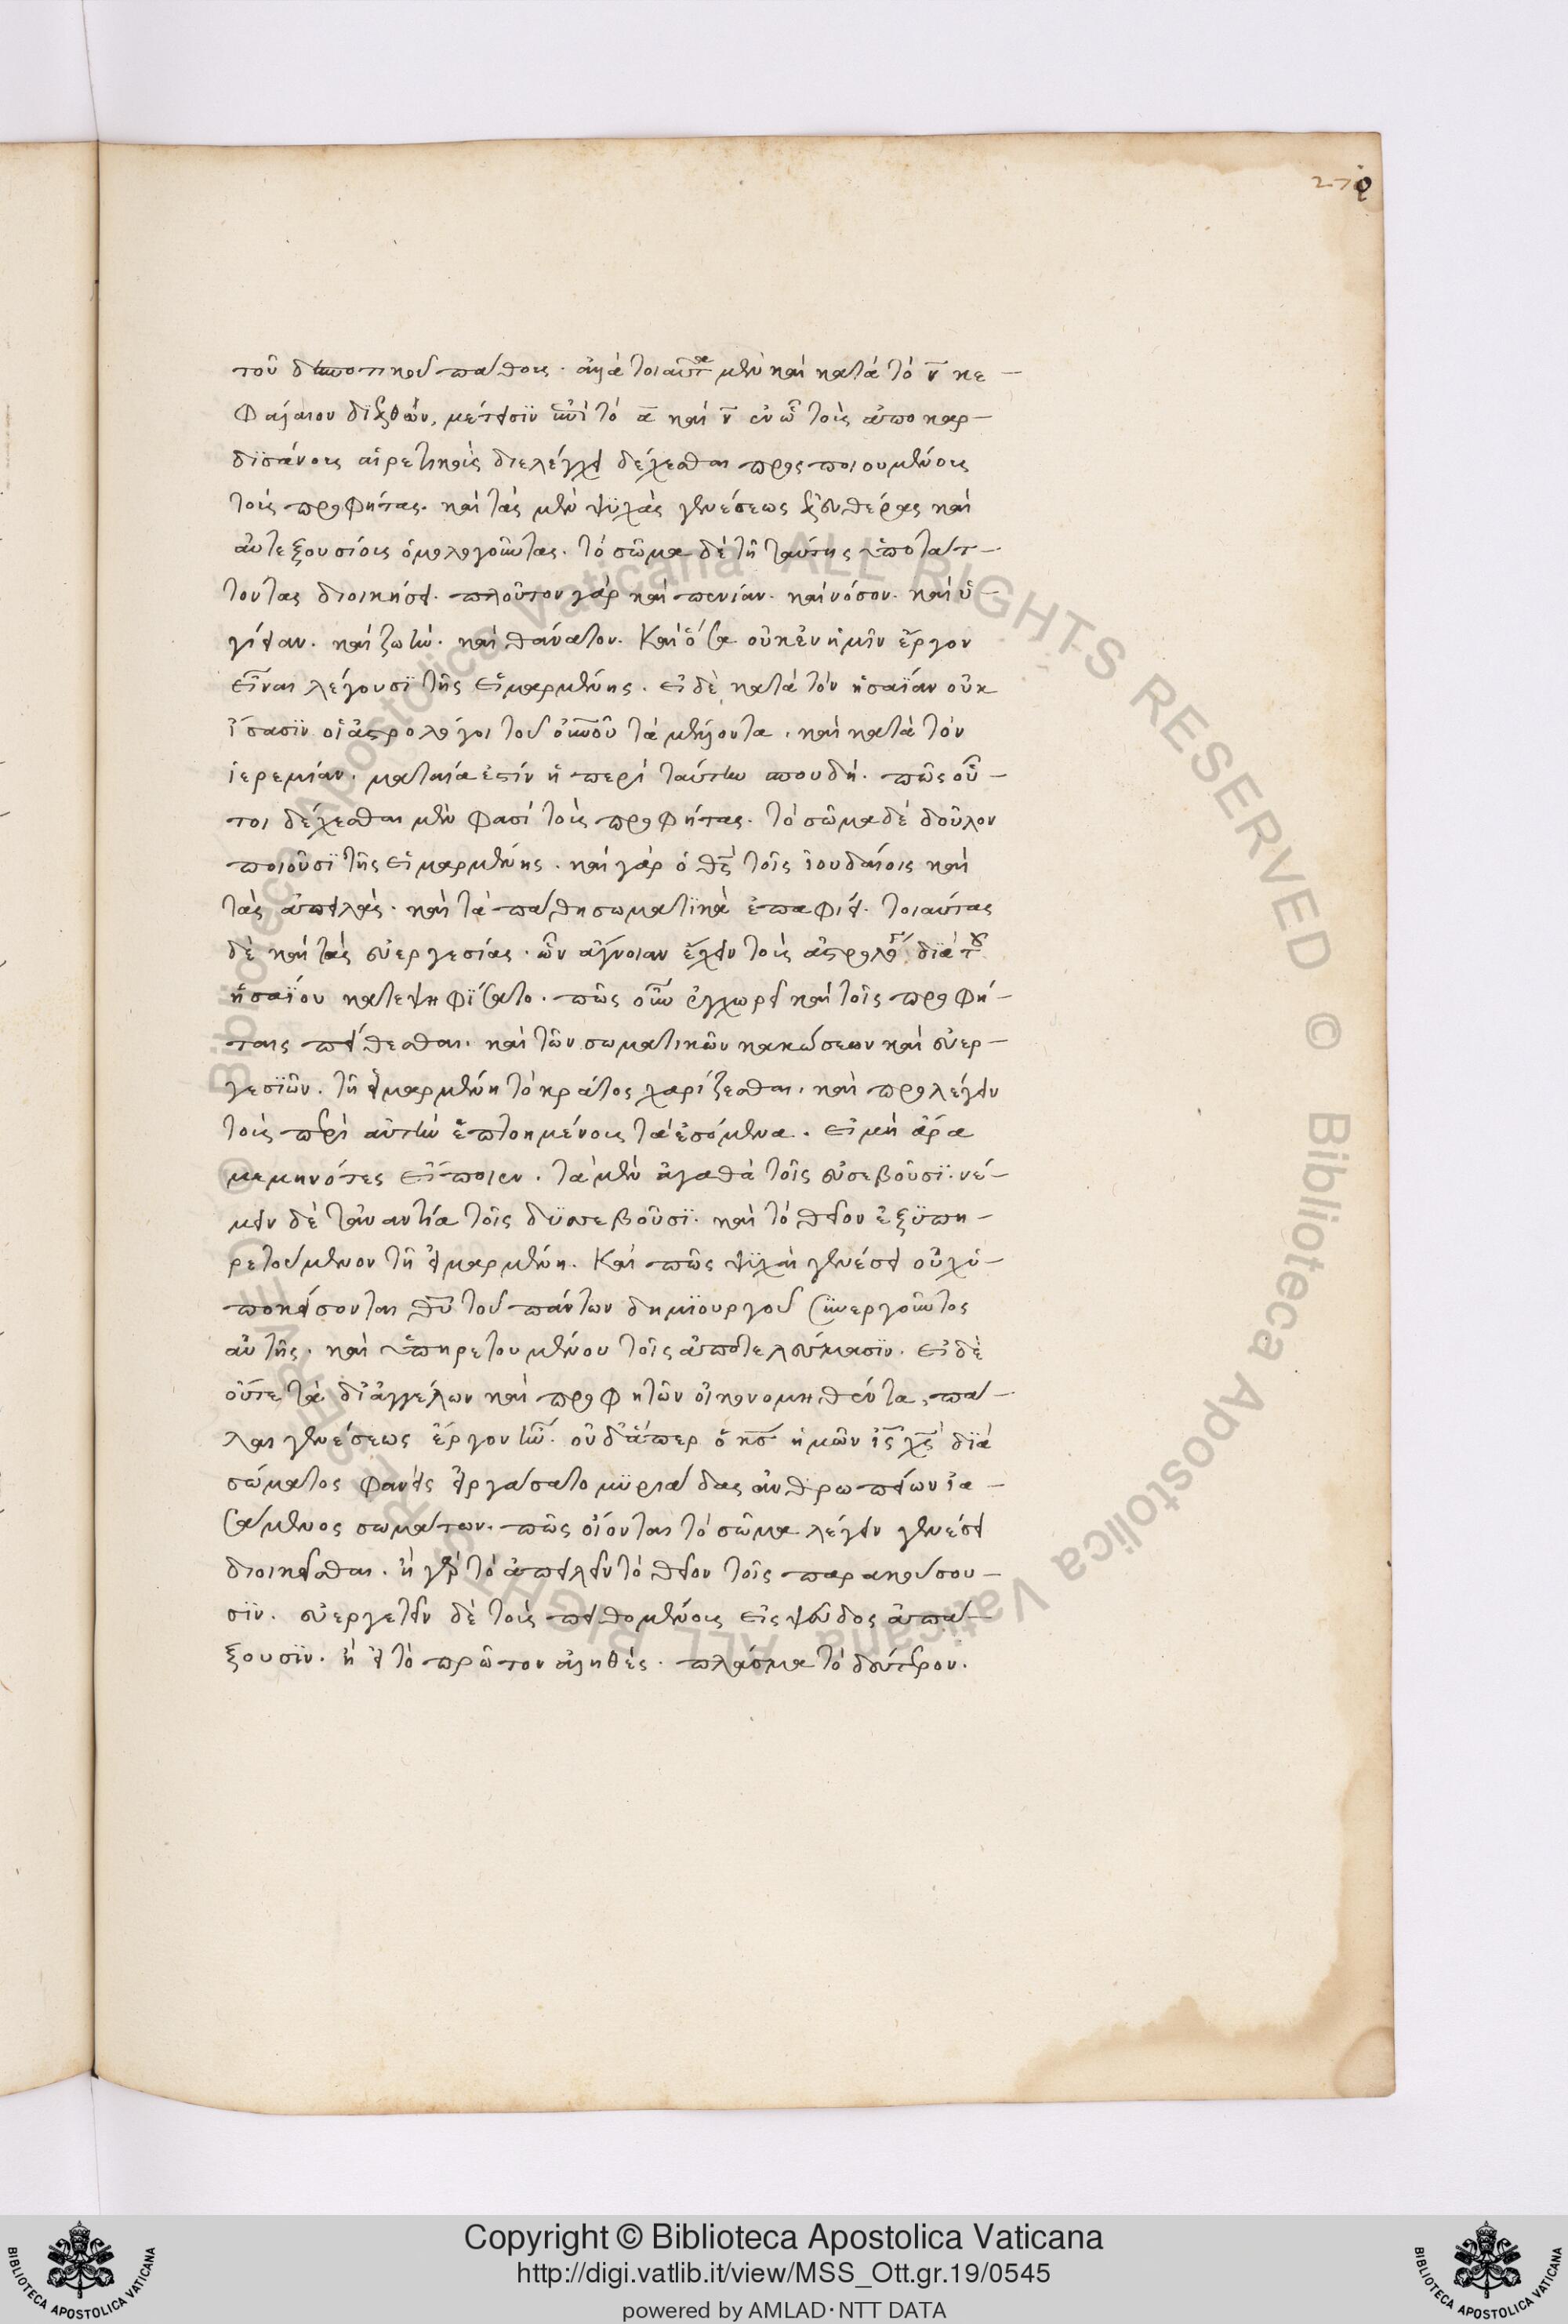 270
τοῦ δεσποτικοῦ πάθους. ἀλλὰ τοιαῦτα μὲν καὶ κατὰ τὸ ν̄ κε-
φάλαιον διεξιών, μέτεισιν ἐπὶ τὸ ᾱ καὶ ν̄ ἐν ᾧ τοὺς ἀπὸ καρ-
δισάνους αἱρετικοὺς διελέγχει δέχεσθαι προσποιουμένους
τοὺς προφήτας. καὶ τὰς μὲν ψϋχὰς γενέσεως ἐλευθέρας καὶ
αὐτεξουσίους ὁμολογοῦντας. τὸ σῶμα δὲ τῇ ταύτης ὑποτάτ-
τοντας διοικήσει. πλοῦτον γὰρ καὶ πενίαν. καὶ νόσον. καὶ ὑ-
γίειαν. καὶ ζωὴν. καὶ θάνατον. καὶ ὅσα οὐκ ἐν ἡμῖν ἔργον
εἶναι λέγουσϊ τῆς εἱμαρμένης. εἰ δὲ κατὰ τὸν ἡσαΐαν οὐκ
ἴσασϊν οἱ ἀστρολόγοι τοῦ οὐνοῦ τὰ μέλλοντα. καὶ κατὰ τὸν
ἱερεμίαν. ματαία ἐστὶν ἡ περὶ ταύτην σπουδή. πῶς οὗ-
τοι δέχεσθαι μὲν φασὶ τοὺς προφήτας. τὸ σῶμα δὲ δοῦλον
ποιοῦσϊ τῆς εἱμαρμένης. καὶ γὰρ ὁ θς τοῖς ἰουδαίοις καὶ
τὰς ἀπειλὰς. καὶ τὰ πάθη σωματϊκὰ ἐπαφίει. τοιαύτας
δὲ καὶ τὰς εὐεργεσίας. ὧν ἄγνοιαν ἔχειν τοὺς ἀστρολόγ διὰ τοῦ
ἡσαΐου κατεψηφΐσατο. πῶς οὖν ἐγχωρεῖ καὶ τοῖς προφή-
ταις πείθεσθαι. καὶ τῶν σωματικῶν κακώσεων καὶ εὐερ-
γεσϊῶν. τῇ εἱμαρμένῃ τὸ κράτος χαρίζεσθαι. καὶ προλέγειν
τοὺς περὶ αὐτὴν ἐπτοημένους τὰ ἐσόμενα. εἰ μὴ ἄρα
μεμηνότες εἴποιεν. τὰ μὲν ἀγαθὰ τοῖς εὐσεβοῦσϊ. νέ-
μειν δὲ τἀναντία τοῖς δϋσσεβοῦσϊ. καὶ τὸ θεῖον ἐξϋπη-
ρετούμενον τῇ εἱμαρμένῃ. καὶ πῶς ψϋχαὶ γενέσει οὐχ ὑ-
ποκείσονται θῦ τοῦ πάντων δημϊουργοῦ συνεργοῦντος
αὐτῆς. καὶ ὑπηρετουμένου τοῖς ἀποτελεύμασϊν. εἰ δὲ
οὔτε τὰ δι' ἀγγέλων καὶ προφητῶν οἰκονομηθέντα, πά-
λαι γενέσεως ἔργον ἦν. οὐδ' ἅπερ ὁ κς ἡμῶν ις χς διὰ
σώματος φανεὶς εἰργάσατο μϋριάδας ἀνθρωπείων ἰα-
σάμενος σωμάτων. πῶς οἴονται τὸ σῶμα λέγειν γενέσει
διοικεῖσθαι. ἢ γὰρ τὸ ἀπειλεῖν τὸ θεῖον τοῖς παρακούσου-
σϊν. εὐεργετεῖν δὲ τοὺς πειθομένους εἰς ψεῦδος ἀπά-
ξουσϊν. ἢ εἰ τὸ πρῶτον ἀληθὲς. πλάσμα τὸ δεύτερον.
Copyright © Biblioteca Apostolica Vaticana
http://digi.vatlib.it/view/MSS_Ott.gr.19/0545
powered by AMLAD·NTT DATA
BIBLIOTECA APOSTOLICA VATICANA
BIBLIOTECA APOSTOLICA VATICANA
© Biblioteca Apostolica Vaticana ALL RIGHTS RESERVED © Biblioteca Apostolica Vaticana ALL RIGHTS RESERVED